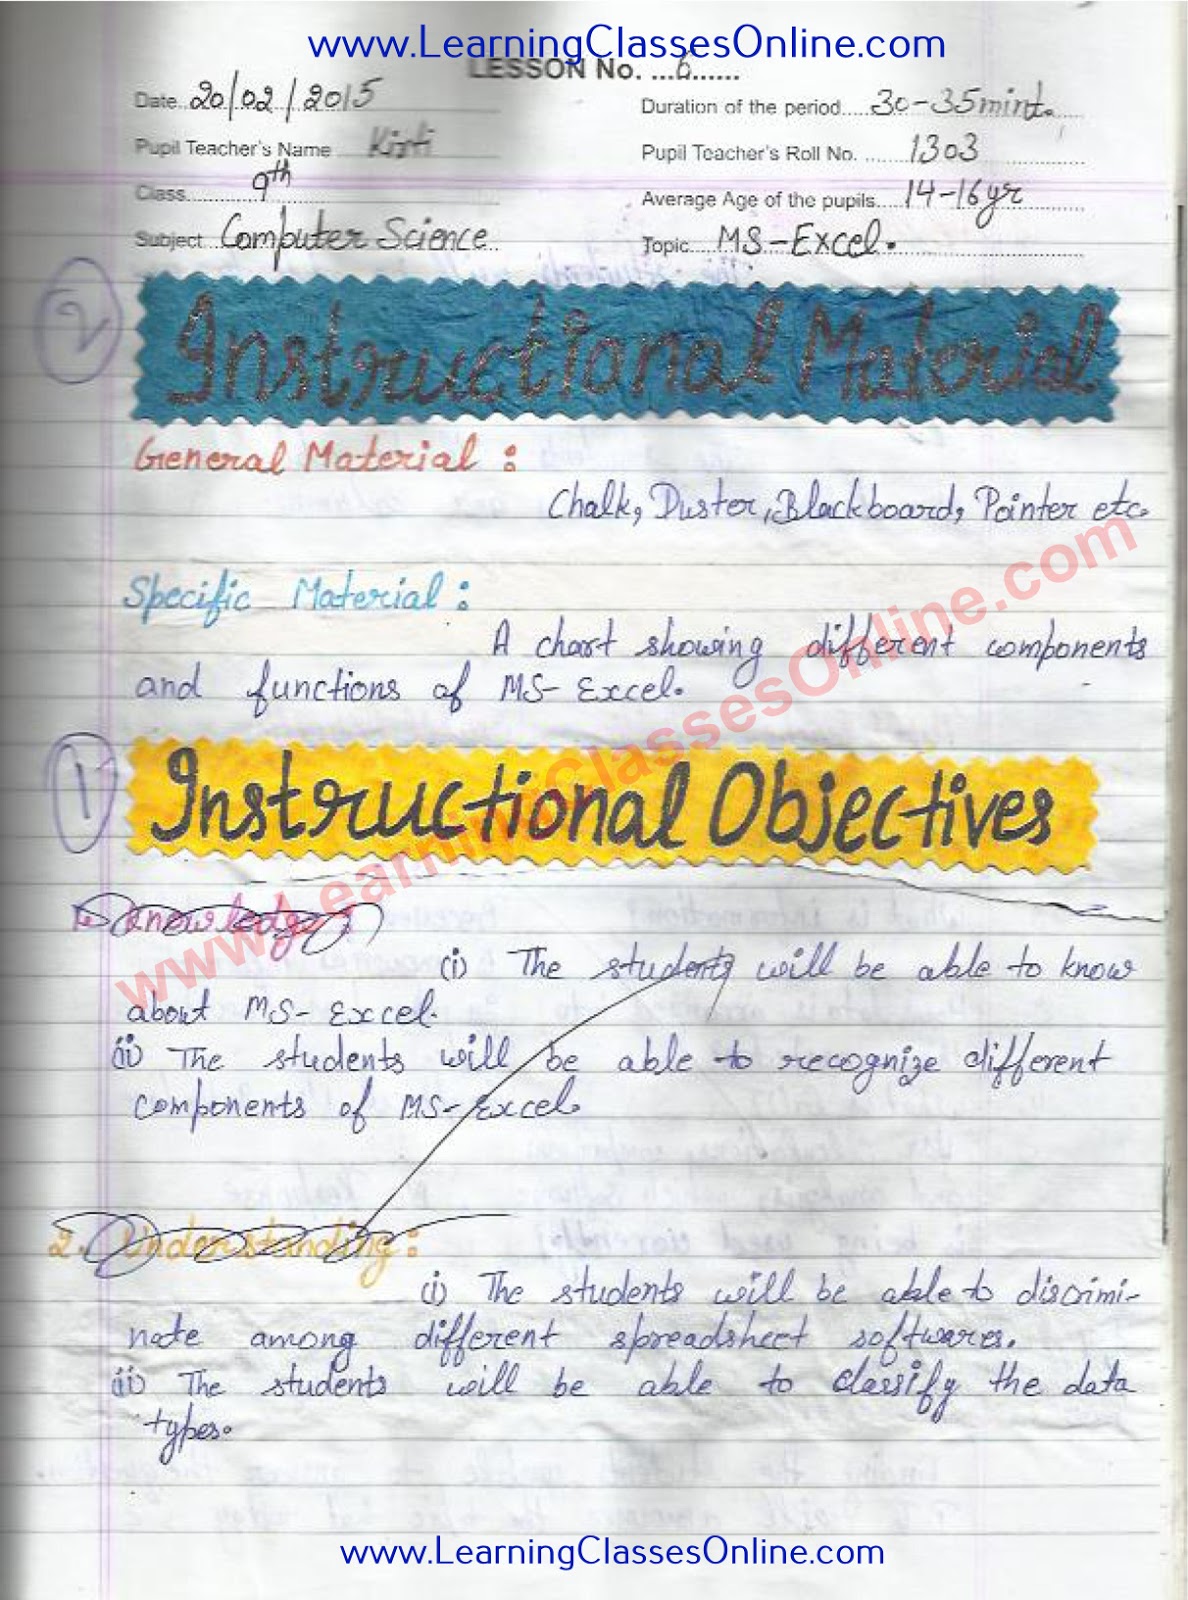 www.LearningClassesOnline.com
LESSON No. ...6......
Date..20/02/2015
Duration of the period.....30-35mint.
Pupil Teacher's Name Kirti
Pupil Teacher's Roll No. .......1303
Class..........9th
Average Age of the pupils.....14-16yr
Subject Computer Science
Topic....MS-Excel.
2
Instructional Material
General Material :
Chalk, Duster, Blackboard, Pointer etc.
Specific Material :
A chart showing different components
and functions of MS-Excel.
1
Instructional Objectives
1. Knowledge :
(i) The students will be able to know
about MS-Excel.
(ii) The students will be able to recognize different
components of MS-Excel.
2. Understanding :
(i) The students will be able to discrimi-
nate among different spreadsheet softwares.
(ii) The students will be able to classify the data
types.
www.LearningClassesOnline.com
www.LearningClassesOnline.com